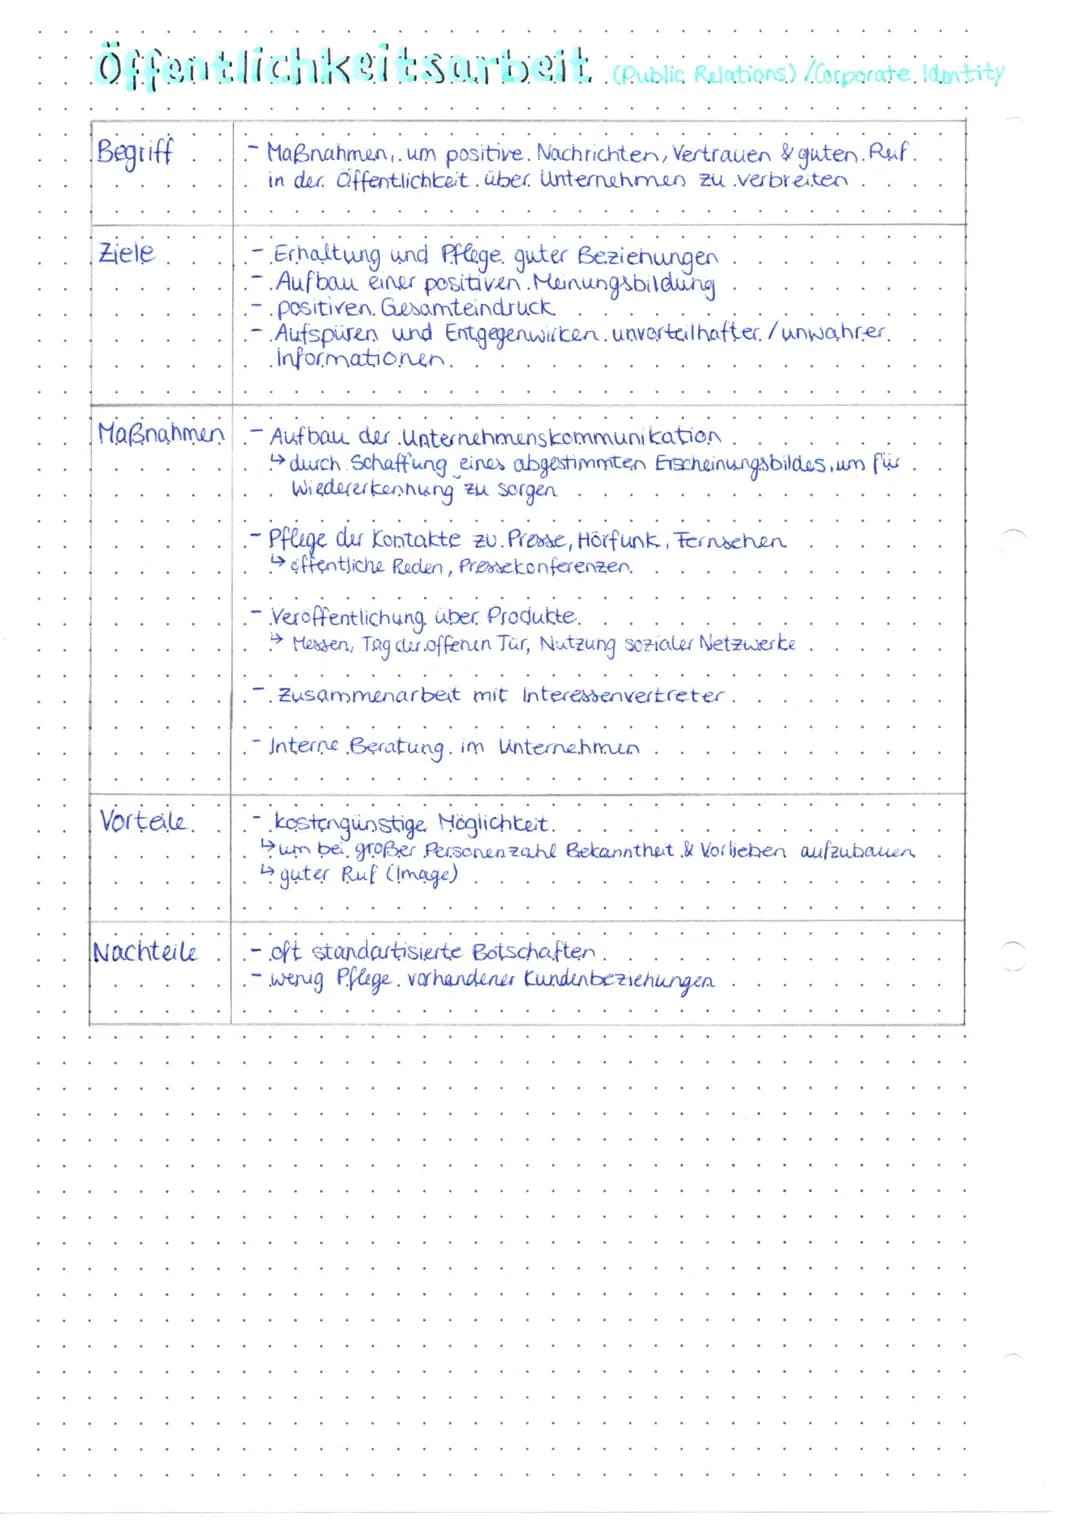 Öffentlichkeitsarbeit (Public Relations) / Corporate Identity
Begriff
- Maßnahmen, um positive Nachrichten, Vertrauen & guten Ruf
in der Öffentlichkeit über Unternehmen zu verbreiten
Ziele
- Erhaltung und Pflege guter Beziehungen
- Aufbau einer positiven Meinungsbildung
- positiven Gesamteindruck
- Aufspüren und Entgegenwirken unvorteilhafter / unwahrer
Informationen
Maßnahmen
- Aufbau der Unternehmenskommunikation
↳ durch Schaffung eines abgestimmten Erscheinungsbildes, um für
Wiedererkennung zu sorgen
- Pflege der Kontakte zu Presse, Hörfunk, Fernsehen
↳ öffentliche Reden, Pressekonferenzen
- Veröffentlichung über Produkte
↳ Messen, Tag der offenen Tür, Nutzung sozialer Netzwerke
- Zusammenarbeit mit Interessenvertreter
- Interne Beratung im Unternehmen
Vorteile
- kostengünstige Möglichkeit
↳ um bei großer Personenzahl Bekanntheit & Vorlieben aufzubauen
↳ guter Ruf (Image)
Nachteile
- oft standartisierte Botschaften
- wenig Pflege vorhandener Kundenbeziehungen